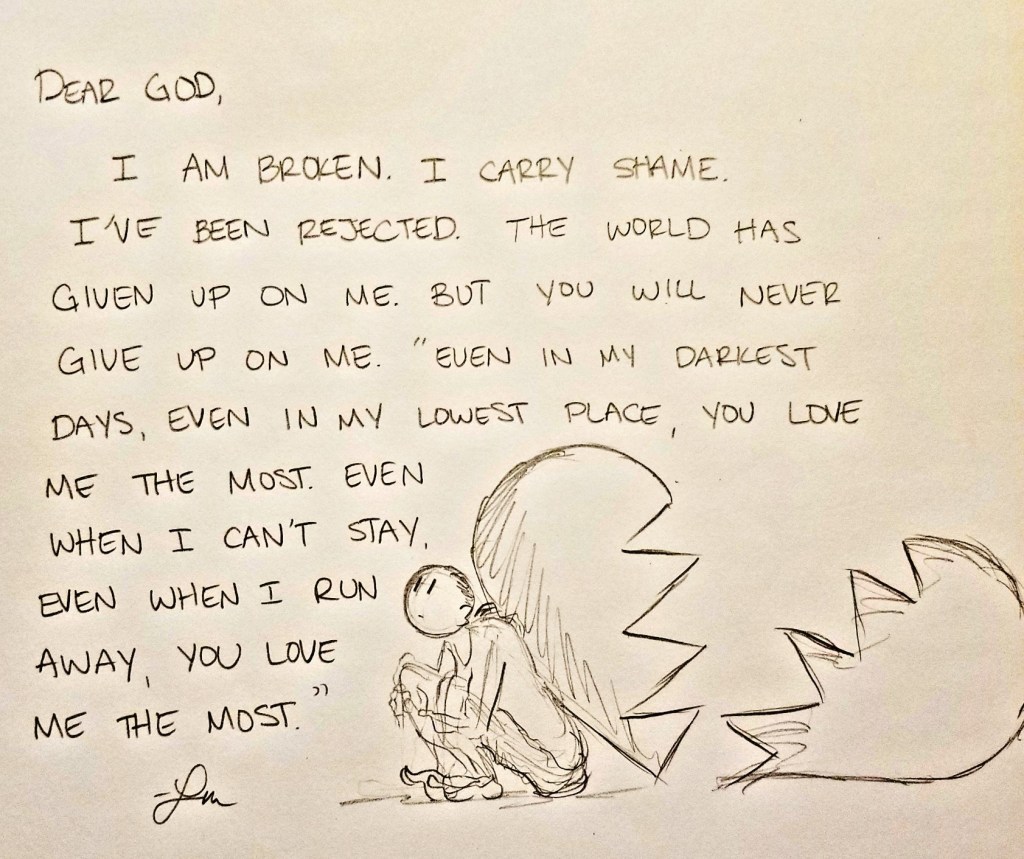 DEAR GOD,
I AM BROKEN. I CARRY SHAME.
I'VE BEEN REJECTED. THE WORLD HAS
GIVEN UP ON ME. BUT YOU WILL NEVER
GIVE UP ON ME. "EVEN IN MY DARKEST
DAYS, EVEN IN MY LOWEST PLACE, YOU LOVE
ME THE MOST. EVEN
WHEN I CAN'T STAY,
EVEN WHEN I RUN
AWAY, YOU LOVE
ME THE MOST."